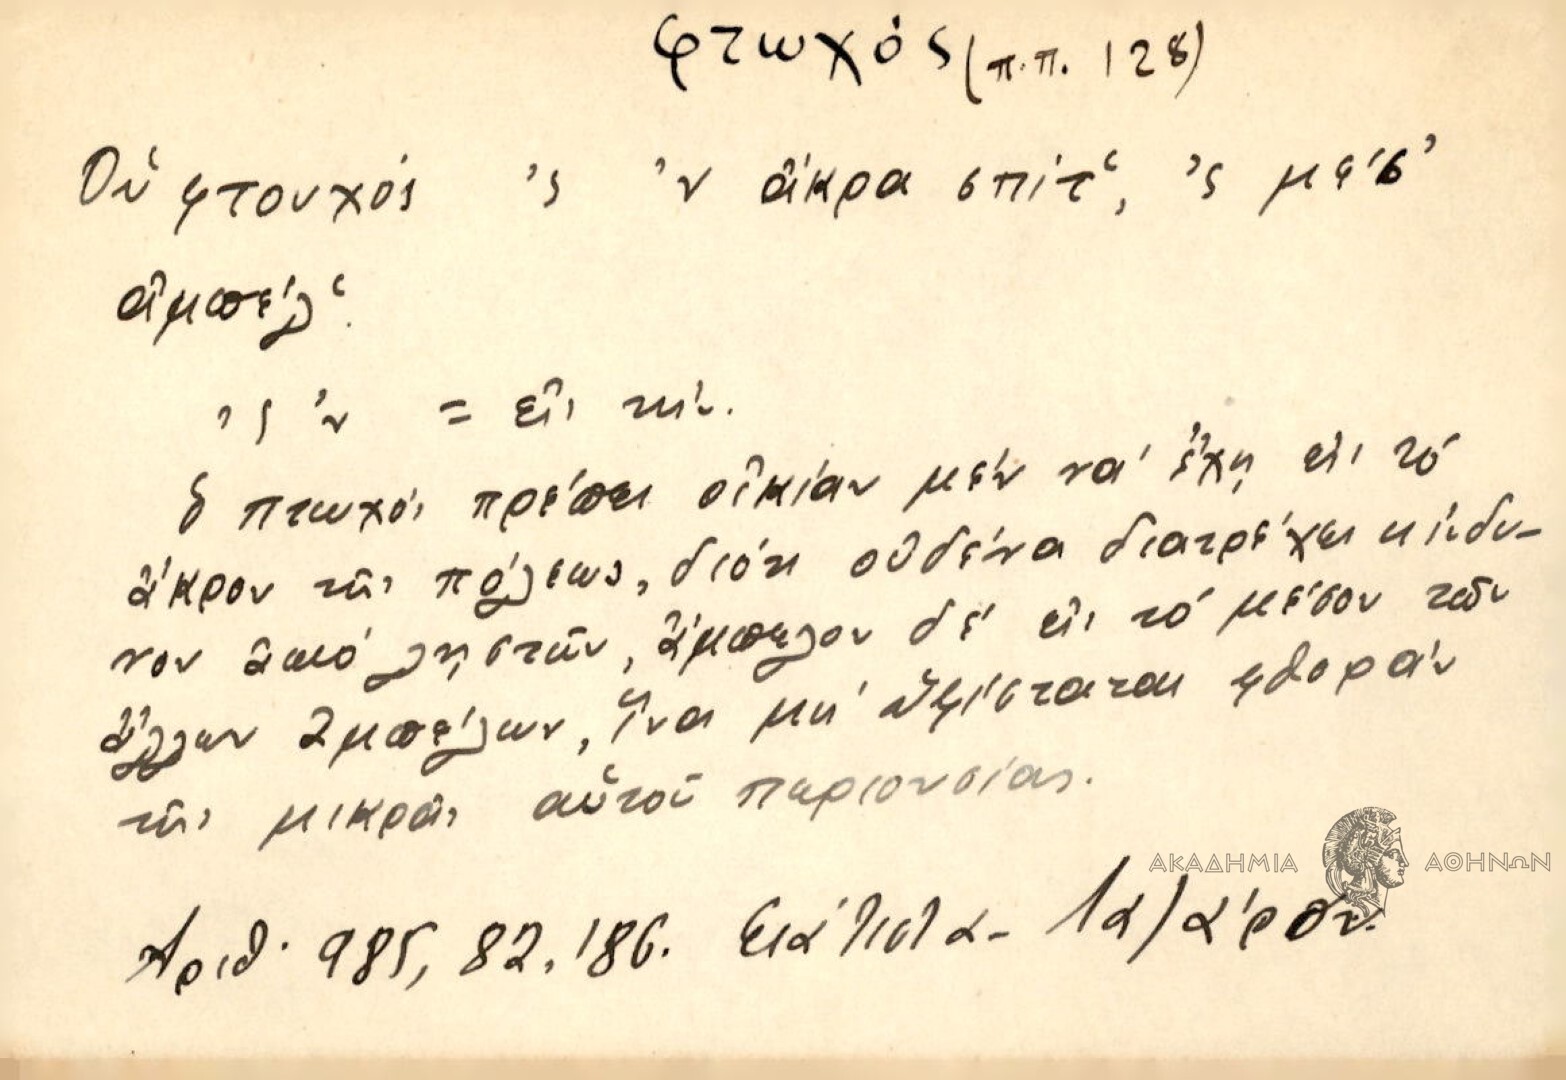 φτωχός (π.π. 128)
Οὑ φτουχός 'ς 'ν ἄκρα σπίτ', 'ς μέσ'
ἀμπέλ'.
'ς 'ν = εἰς τήν.
ὁ πτωχός πρέπει οἰκίαν μέν νά ἔχῃ εἰς τό
ἄκρον τῆς πόλεως, διότι οὐδένα διατρέχει κίνδυ-
νον ἀπό λῃστῶν, ἄμπελον δέ εἰς τό μέσον τῶν
ἄλλων ἀμπέλων, ἵνα μή ὑφίσταται φθοράν
τῆς μικρᾶς αὑτοῦ περιουσίας.
Ἀριθ. 985, 82, 186. Σιάτιστα - Λαζάρου.
ΑΚΑΔΗΜΙΑ ΑΘΗΝΩΝ